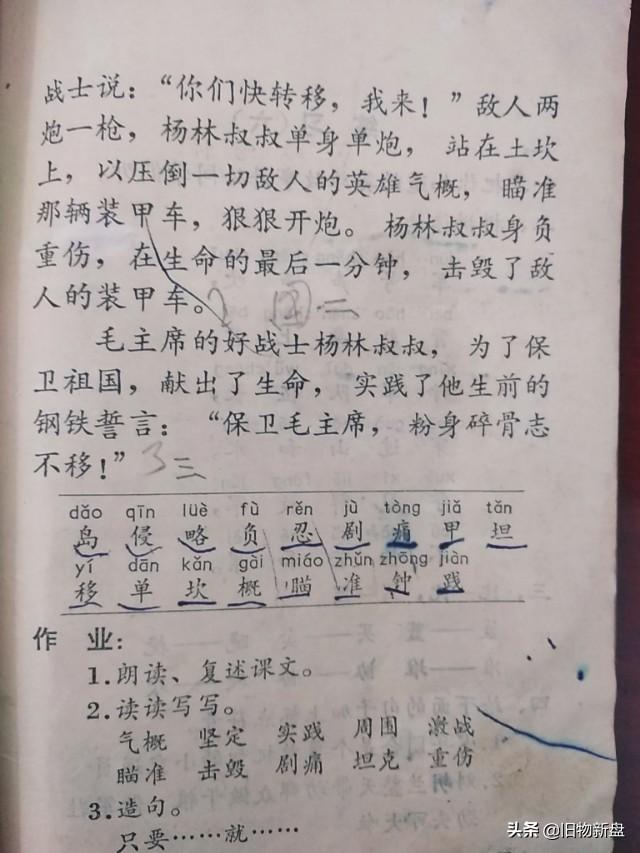 战士说：“你们快转移，我来！”敌人两
炮一枪，杨林叔叔单身单炮，站在土坎
上，以压倒一切敌人的英雄气概，瞄准
那辆装甲车，狠狠开炮。杨林叔叔身负
重伤，在生命的最后一分钟，击毁了敌
人的装甲车。
毛主席的好战士杨林叔叔，为了保
卫祖国，献出了生命，实践了他生前的
钢铁誓言：“保卫毛主席，粉身碎骨志
不移！” 3 三
dǎo qīn lüè fù rěn jù tòng jiǎ tǎn
岛 侵 略 负 忍 剧 痛 甲 坦
yí dān kǎn gài miáo zhǔn zhōng jiàn
移 单 坎 概 瞄 准 钟 践
作 业：
1.朗读、复述课文。
2.读读写写。
气概 坚定 实践 周围 激战
瞄准 击毁 剧痛 坦克 重伤
3.造句。
只要……就……
头条 @旧物新盘